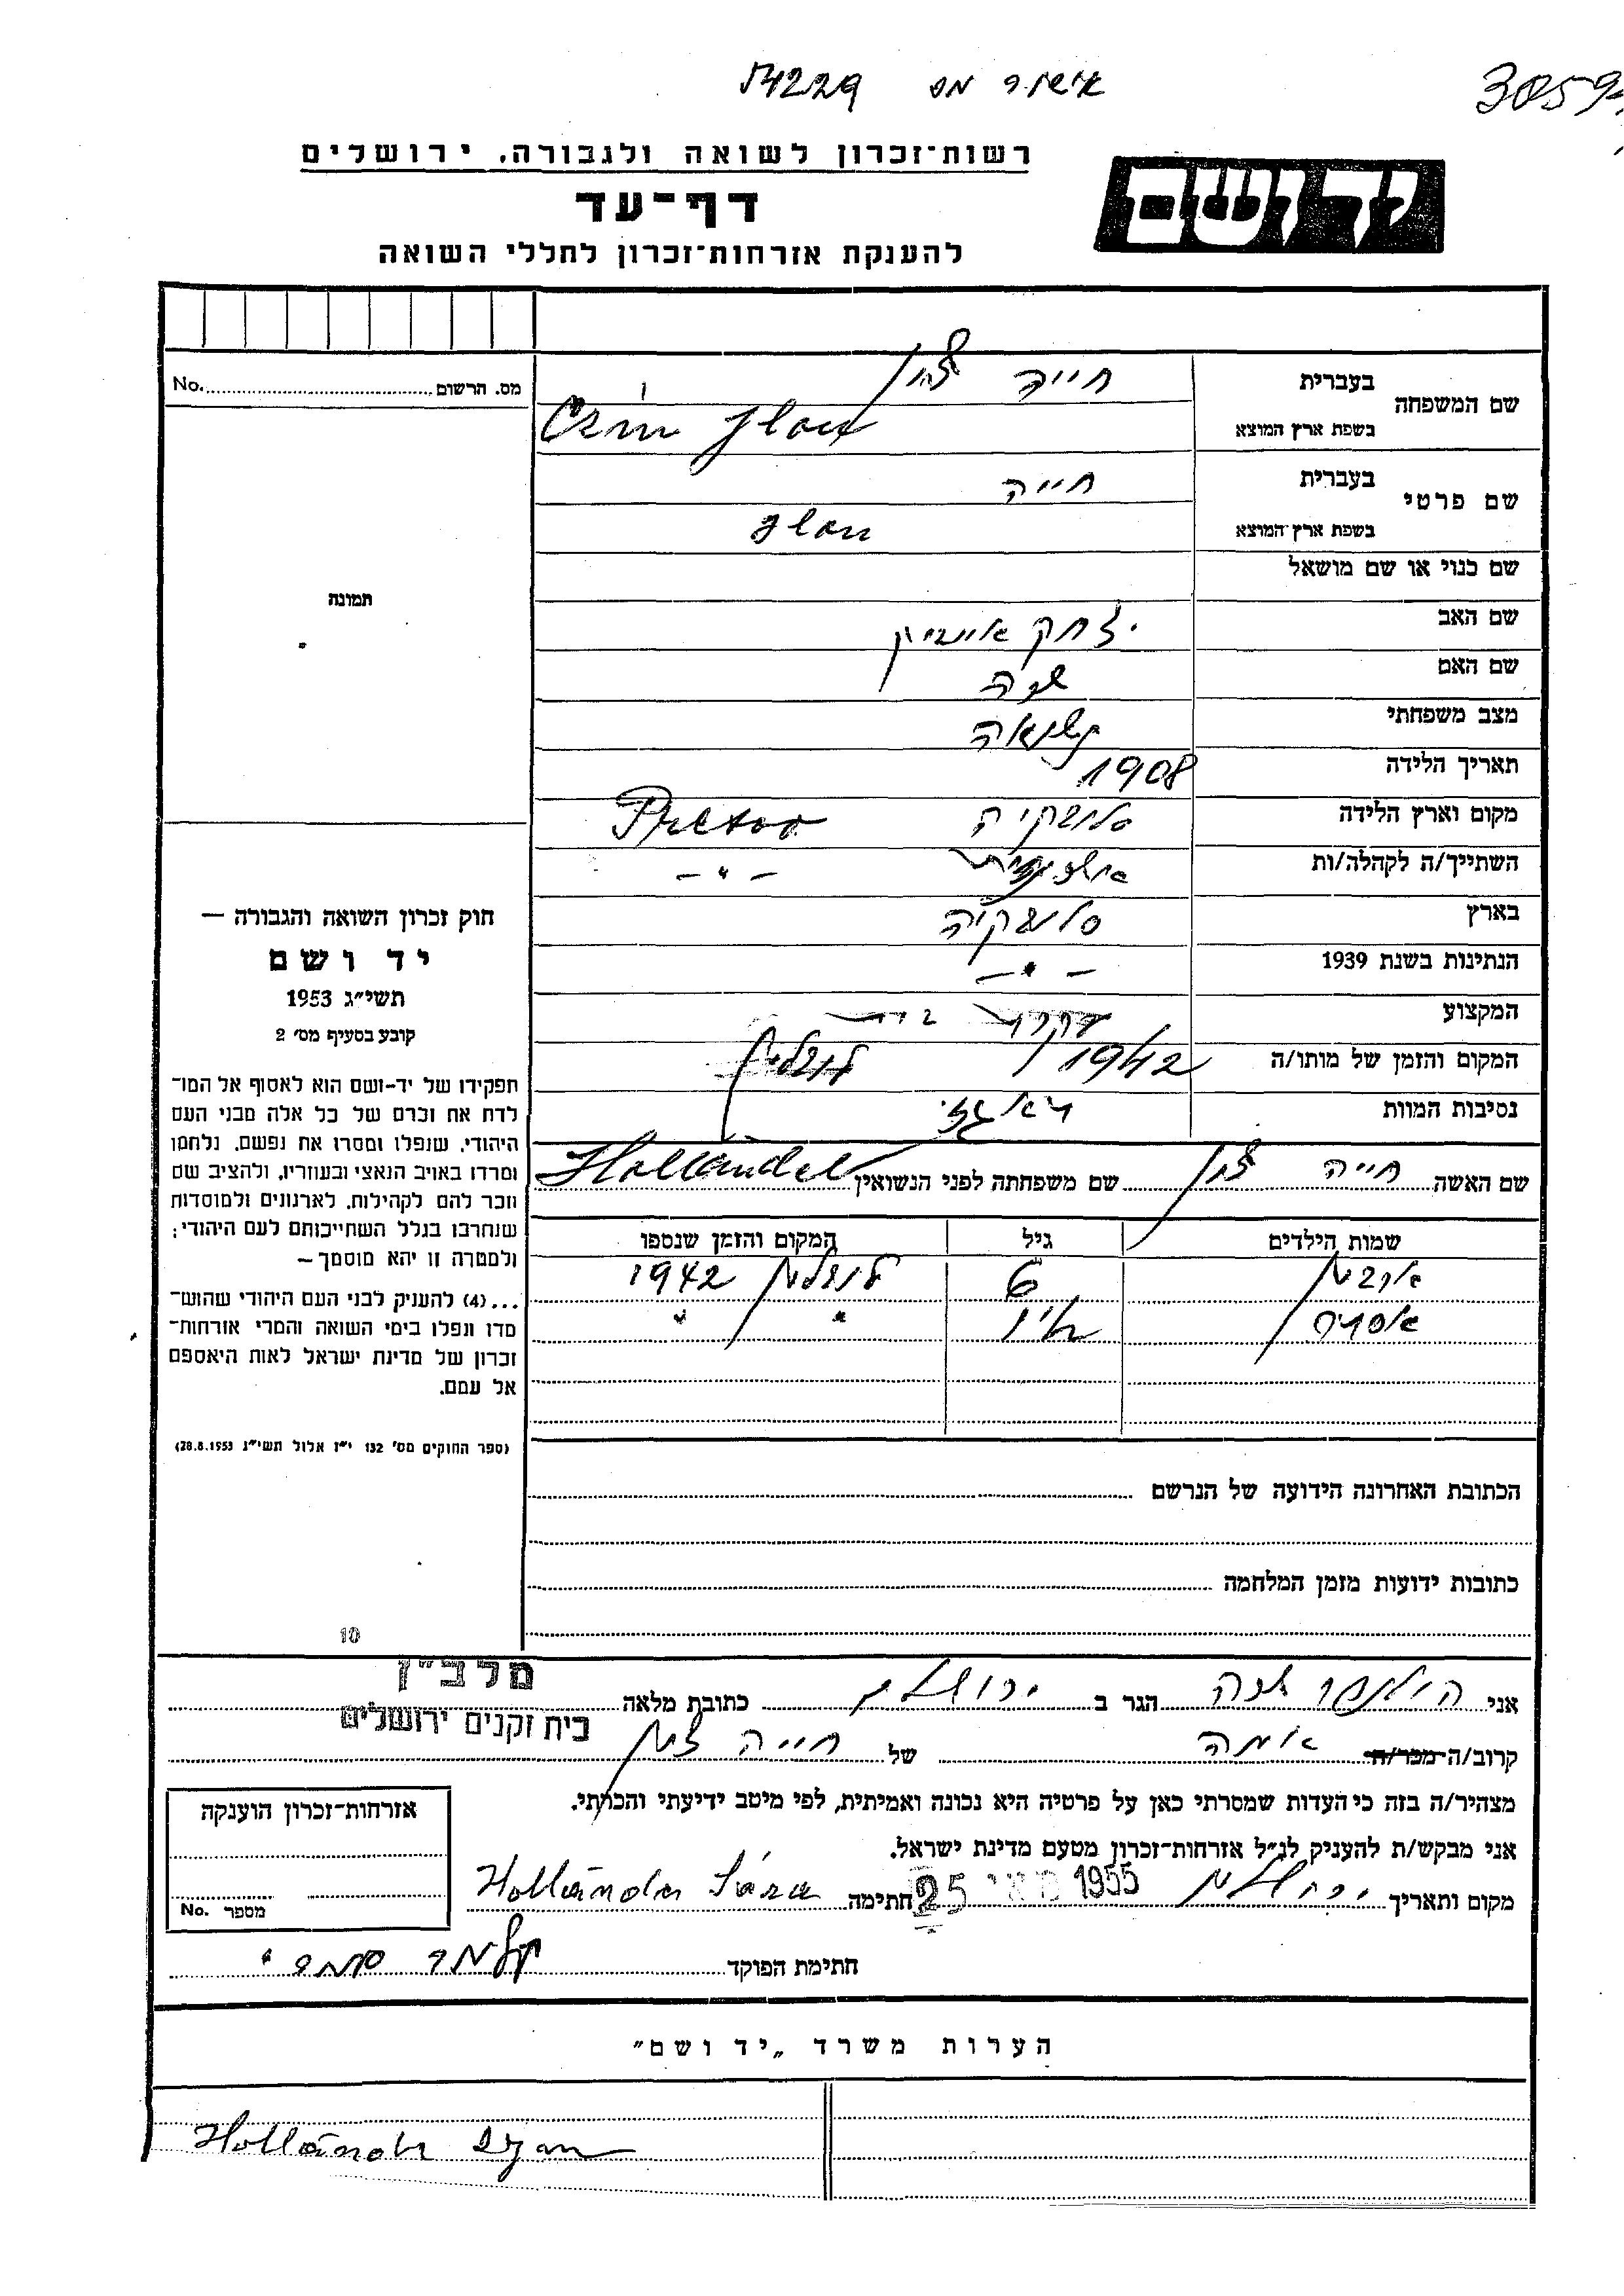 אישור מס 54229
3059
רשות־זכרון לשואה ולגבורה, ירושלים
יד ושם
דף־עד
להענקת אזרחות־זכרון לחללי השואה
מס. הרשום No.
תמונה
שם המשפחה
בעברית חייה
בשפת ארץ המוצא
שם פרטי
בעברית חייה
בשפת ארץ־המוצא
שם כנוי או שם מושאל
שם האב יצחק
שם האם שרה
מצב משפחתי נשואה
תאריך הלידה 1908
מקום וארץ הלידה סלובקיה
השתייך/ה לקהלה/ות — " —
בארץ סלובקיה
הנתינות בשנת 1939 — " —
המקצוע
המקום והזמן של מותו/ה 1942 לובלין
נסיבות המוות
שם האשה חייה שם משפחתה לפני הנשואין
שמות הילדים גיל המקום והזמן שנספו
6 לובלין 1942
" "
הכתובת האחרונה הידועה של הנרשם
כתובות ידועות מזמן המלחמה
חוק זכרון השואה והגבורה —
יד ושם
תשי"ג 1953
קובע בסעיף מס' 2
תפקידו של יד-ושם הוא לאסוף אל המו־
לדת את זכרם של כל אלה מבני העם
היהודי, שנפלו ומסרו את נפשם, נלחמו
ומרדו באויב הנאצי ובעוזריו, ולהציב שם
וזכר להם לקהילות, לארגונים ולמוסדות
שנחרבו בגלל השתייכותם לעם היהודי;
ולמטרה זו יהא מוסמך —
...(4) להעניק לבני העם היהודי שהוש־
מדו ונפלו בימי השואה והמרי אזרחות־
זכרון של מדינת ישראל לאות היאספם
אל עמם.
(ספר החוקים מס' 132 י"ז אלול תשי"ג 28.8.1953)
10
אני הולנדר שרה הגר ב ירושלים כתובת מלאה מלב"ן
בית זקנים ירושלים
קרוב/ה מכר/ה אמה של חייה
מצהיר/ה בזה כי העדות שמסרתי כאן על פרטיה היא נכונה ואמיתית, לפי מיטב ידיעתי והכרתי.
אני מבקש/ת להעניק לנ"ל אזרחות־זכרון מטעם מדינת ישראל.
מקום ותאריך ירושלים 25 מאי 1955 חתימה Hollánder Sára
חתימת הפוקד
אזרחות־זכרון הוענקה
מספר No.
הערות משרד „יד ושם"